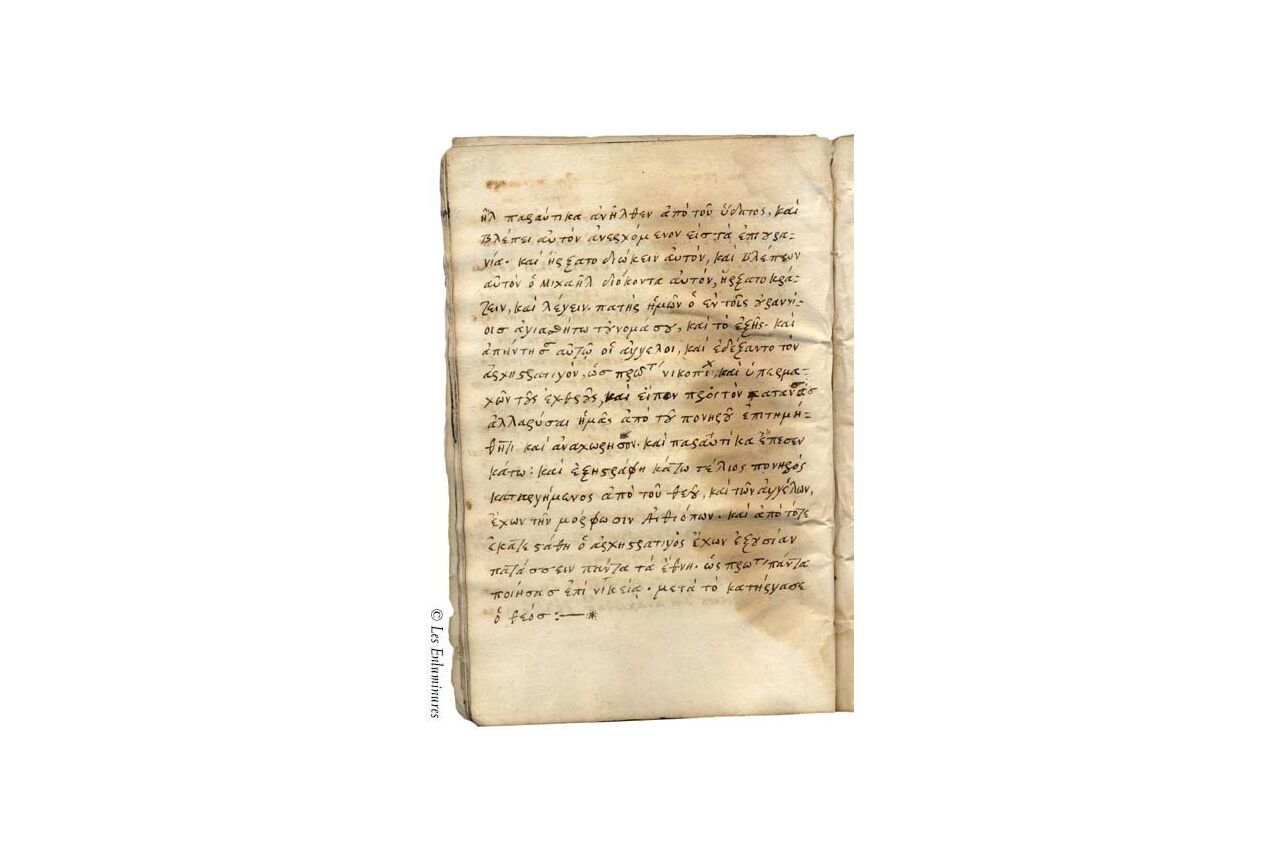 ὴλ παραύτικα ἀνῆλθεν ἀπὸ τοῦ ὕδατος, καὶ
βλέπει αὐτὸν ἀνερχόμενον εἰς τὰ ἐπουρά-
νία. καὶ ἤρξατο διώκειν αὐτὸν, καὶ βλέπων
αὐτὸν ὁ μιχαὴλ διόκοντα αὐτὸν, ἤρξατο κρά-
ζειν, καὶ λέγειν. πατὴρ ἡμῶν ὁ ἐν τοῖς οὐραννί-
οις ἁγιασθήτω τοὔνομά σου, καὶ τὸ ἑξῆς. καὶ
αὐτῷ οἱ ἄγγελοι, καὶ ἐδέξαντο τὸν
ἀρχηστρατιγὸν, ὡς καὶ ὑπερμα-
χῶν τοὺς ἐχθροὺς, καὶ εἶπον πρὸς τὸν
ἀλλαροῦσαι ἡμᾶς ἀπὸ τοῦ πονηροῦ ἐπιτημή-
θητι καὶ ἀναχώρησον. καὶ παραυτίκα ἔπεσεν
κάτω: καὶ ἐξηστράφη κάτω τέλιος πονηρὸς
κατηργήμένος ἀπὸ τοῦ θεοῦ, καὶ τῶν ἀγγέλων,
ἔχων τὴν μόρφωσιν Αἰθιόπων. καὶ ἀπὸ τότε
ἐκατεστάθη ὁ ἀρχηστρατιγὸς ἔχων ἐξουσίαν
πατάσσειν πάντα τὰ ἔθνη. ὡς πάντα
ποιήσας ἐπὶ νίκεία. μετὰ τὸ κατήργασε
ὁ θεός :—*
© Les Enluminures